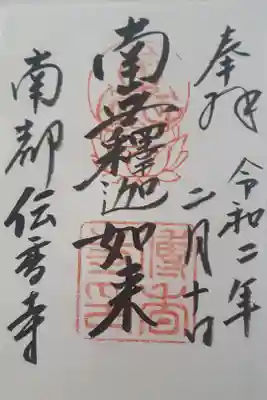 奉拝
令和二年
二月十日
南無釋迦如来
南都伝香寺